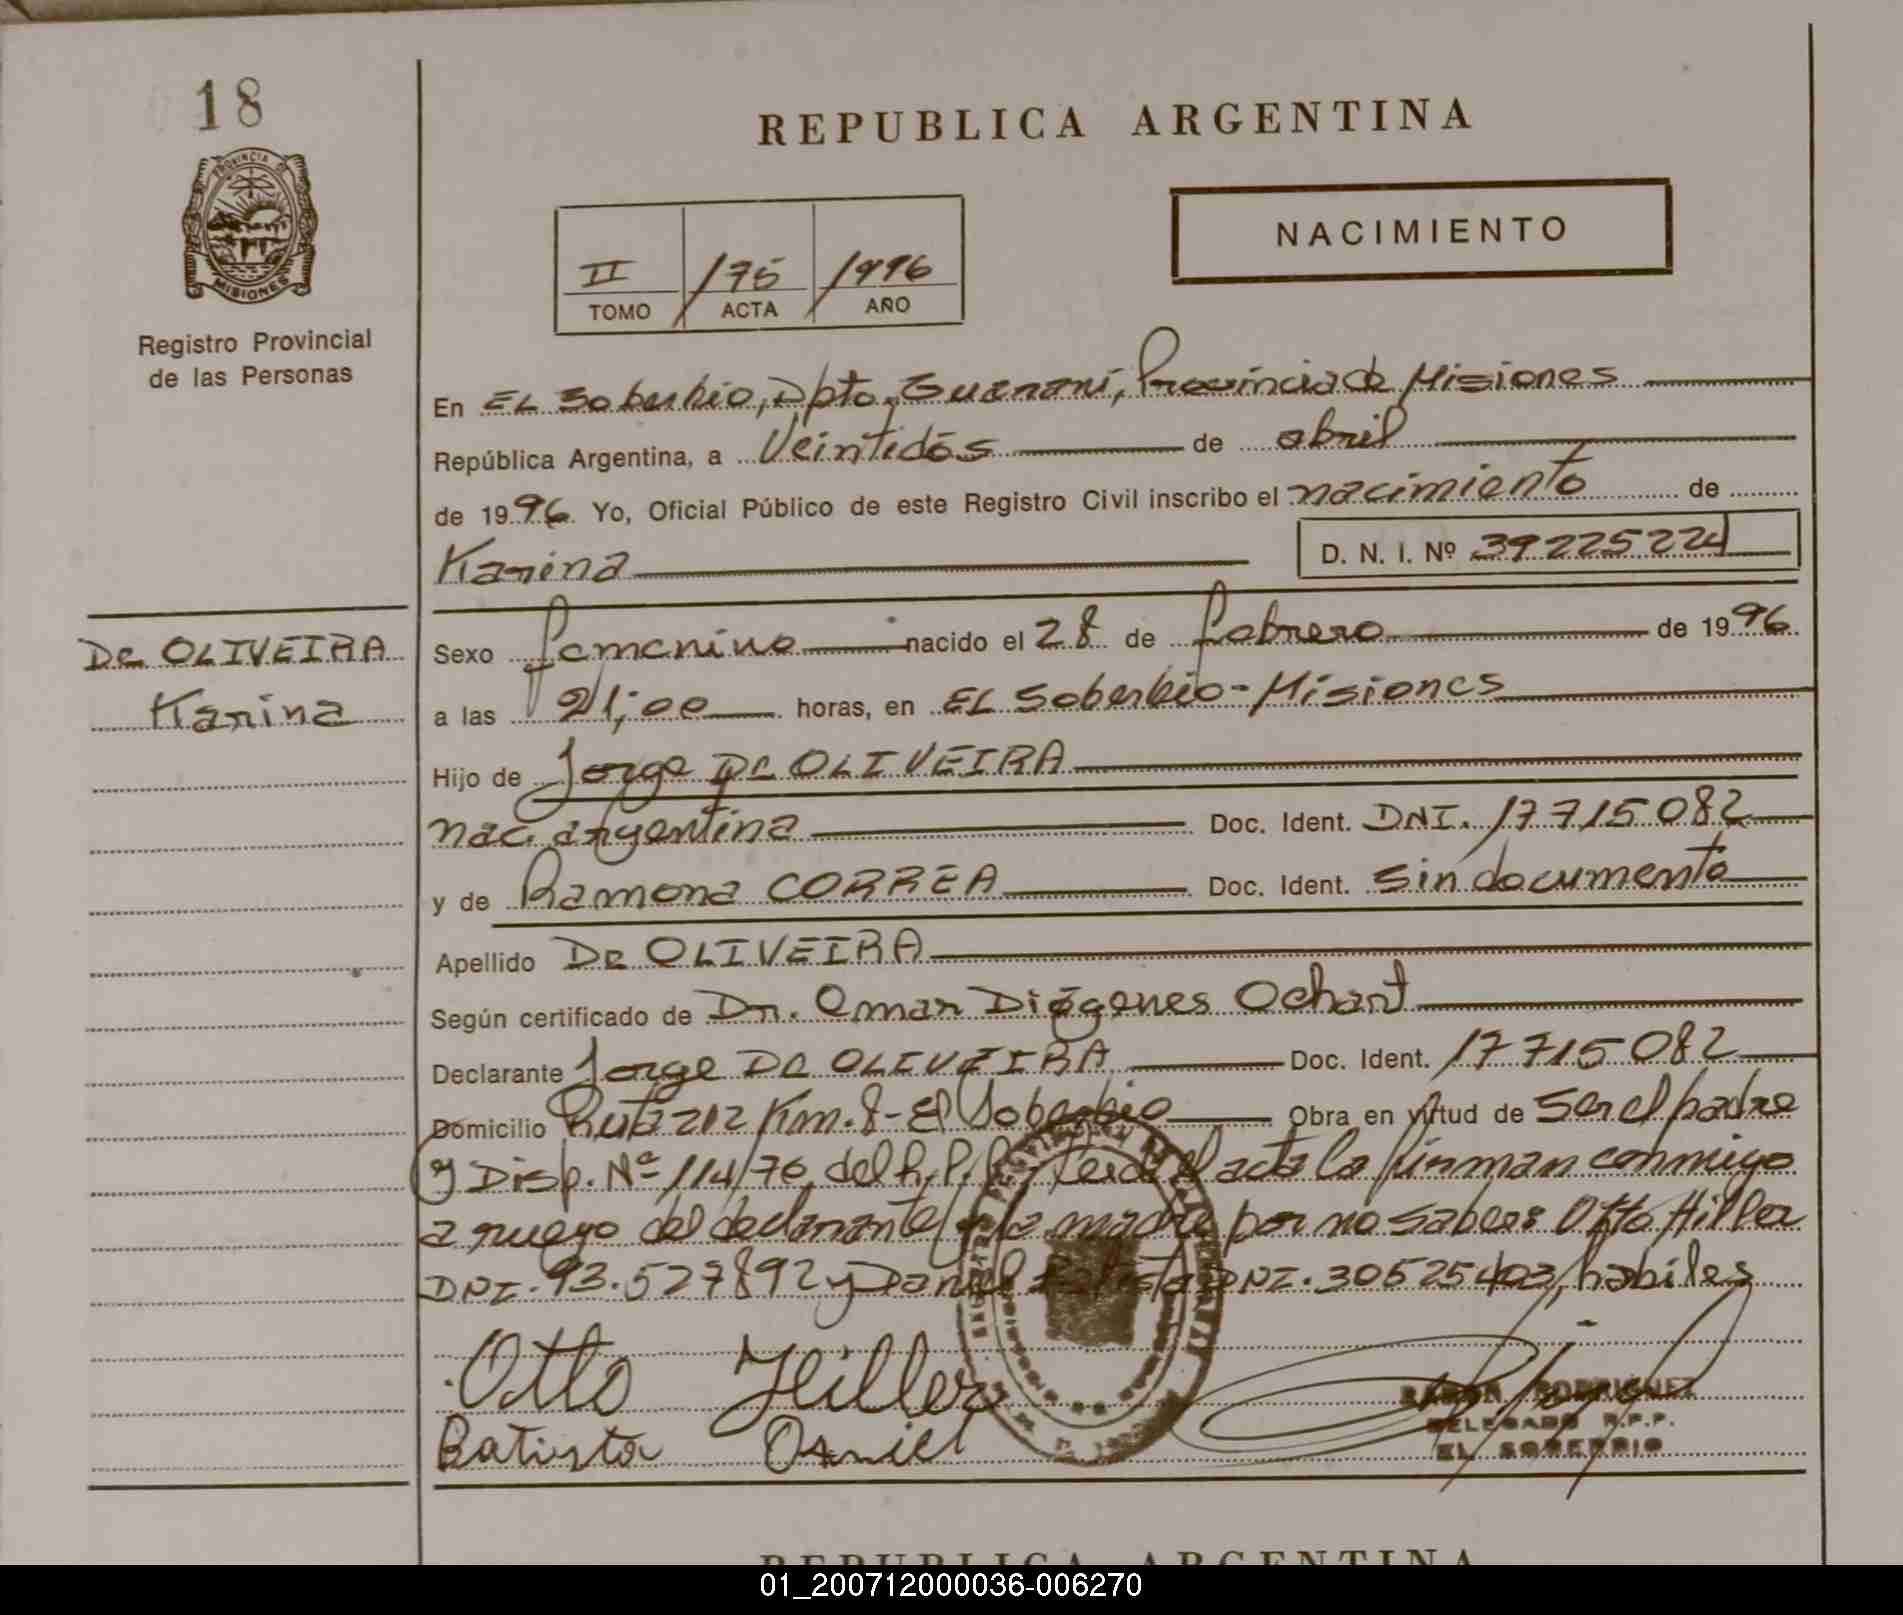 18
PROVINCIA DE
MISIONES
Registro Provincial
de las Personas
REPUBLICA ARGENTINA
NACIMIENTO
II /75 /996
TOMO ACTA AÑO
En EL Soberbio, Dpto. Guaraní, Provincia de Misiones
República Argentina, a Veintidós de abril
de 1996 Yo, Oficial Público de este Registro Civil inscribo el nacimiento de
Karina D. N. I. Nº 39225224
De OLIVEIRA
Karina
Sexo femenino nacido el 28 de febrero de 1996
a las 21,00 horas, en EL Soberbio - Misiones
Hijo de Jorge De OLIVEIRA
nac. argentina Doc. Ident. DNI. 17715082
y de Ramona CORREA Doc. Ident. sin documento
Apellido De OLIVEIRA
Según certificado de Dr. Omar Diógenes Ochart
Declarante Jorge De OLIVEIRA Doc. Ident. 17715082
Domicilio Ruta 212 Km. 8 - El Soberbio Obra en virtud de ser el padre
y Disp. Nº 114/76 del R.P.P. Leída el acta la firman conmigo
a ruego del declarante y la madre por no saber: Otto Hiller
DNI. 93.527892 y Daniel Batista DNI. 30525403, habiles
Otto Hiller
Batista Daniel
RAMON RODRIGUEZ
DELEGADO R.P.P.
EL SOBERBIO
REPUBLICA ARGENTINA
01_200712000036-006270